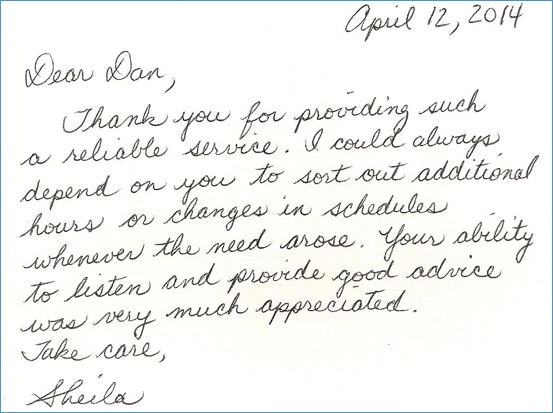 April 12, 2014
Dear Dan,
Thank you for providing such
a reliable service. I could always
depend on you to sort out additional
hours or changes in schedules
whenever the need arose. Your ability
to listen and provide good advice
was very much appreciated.
Take care,
Sheila